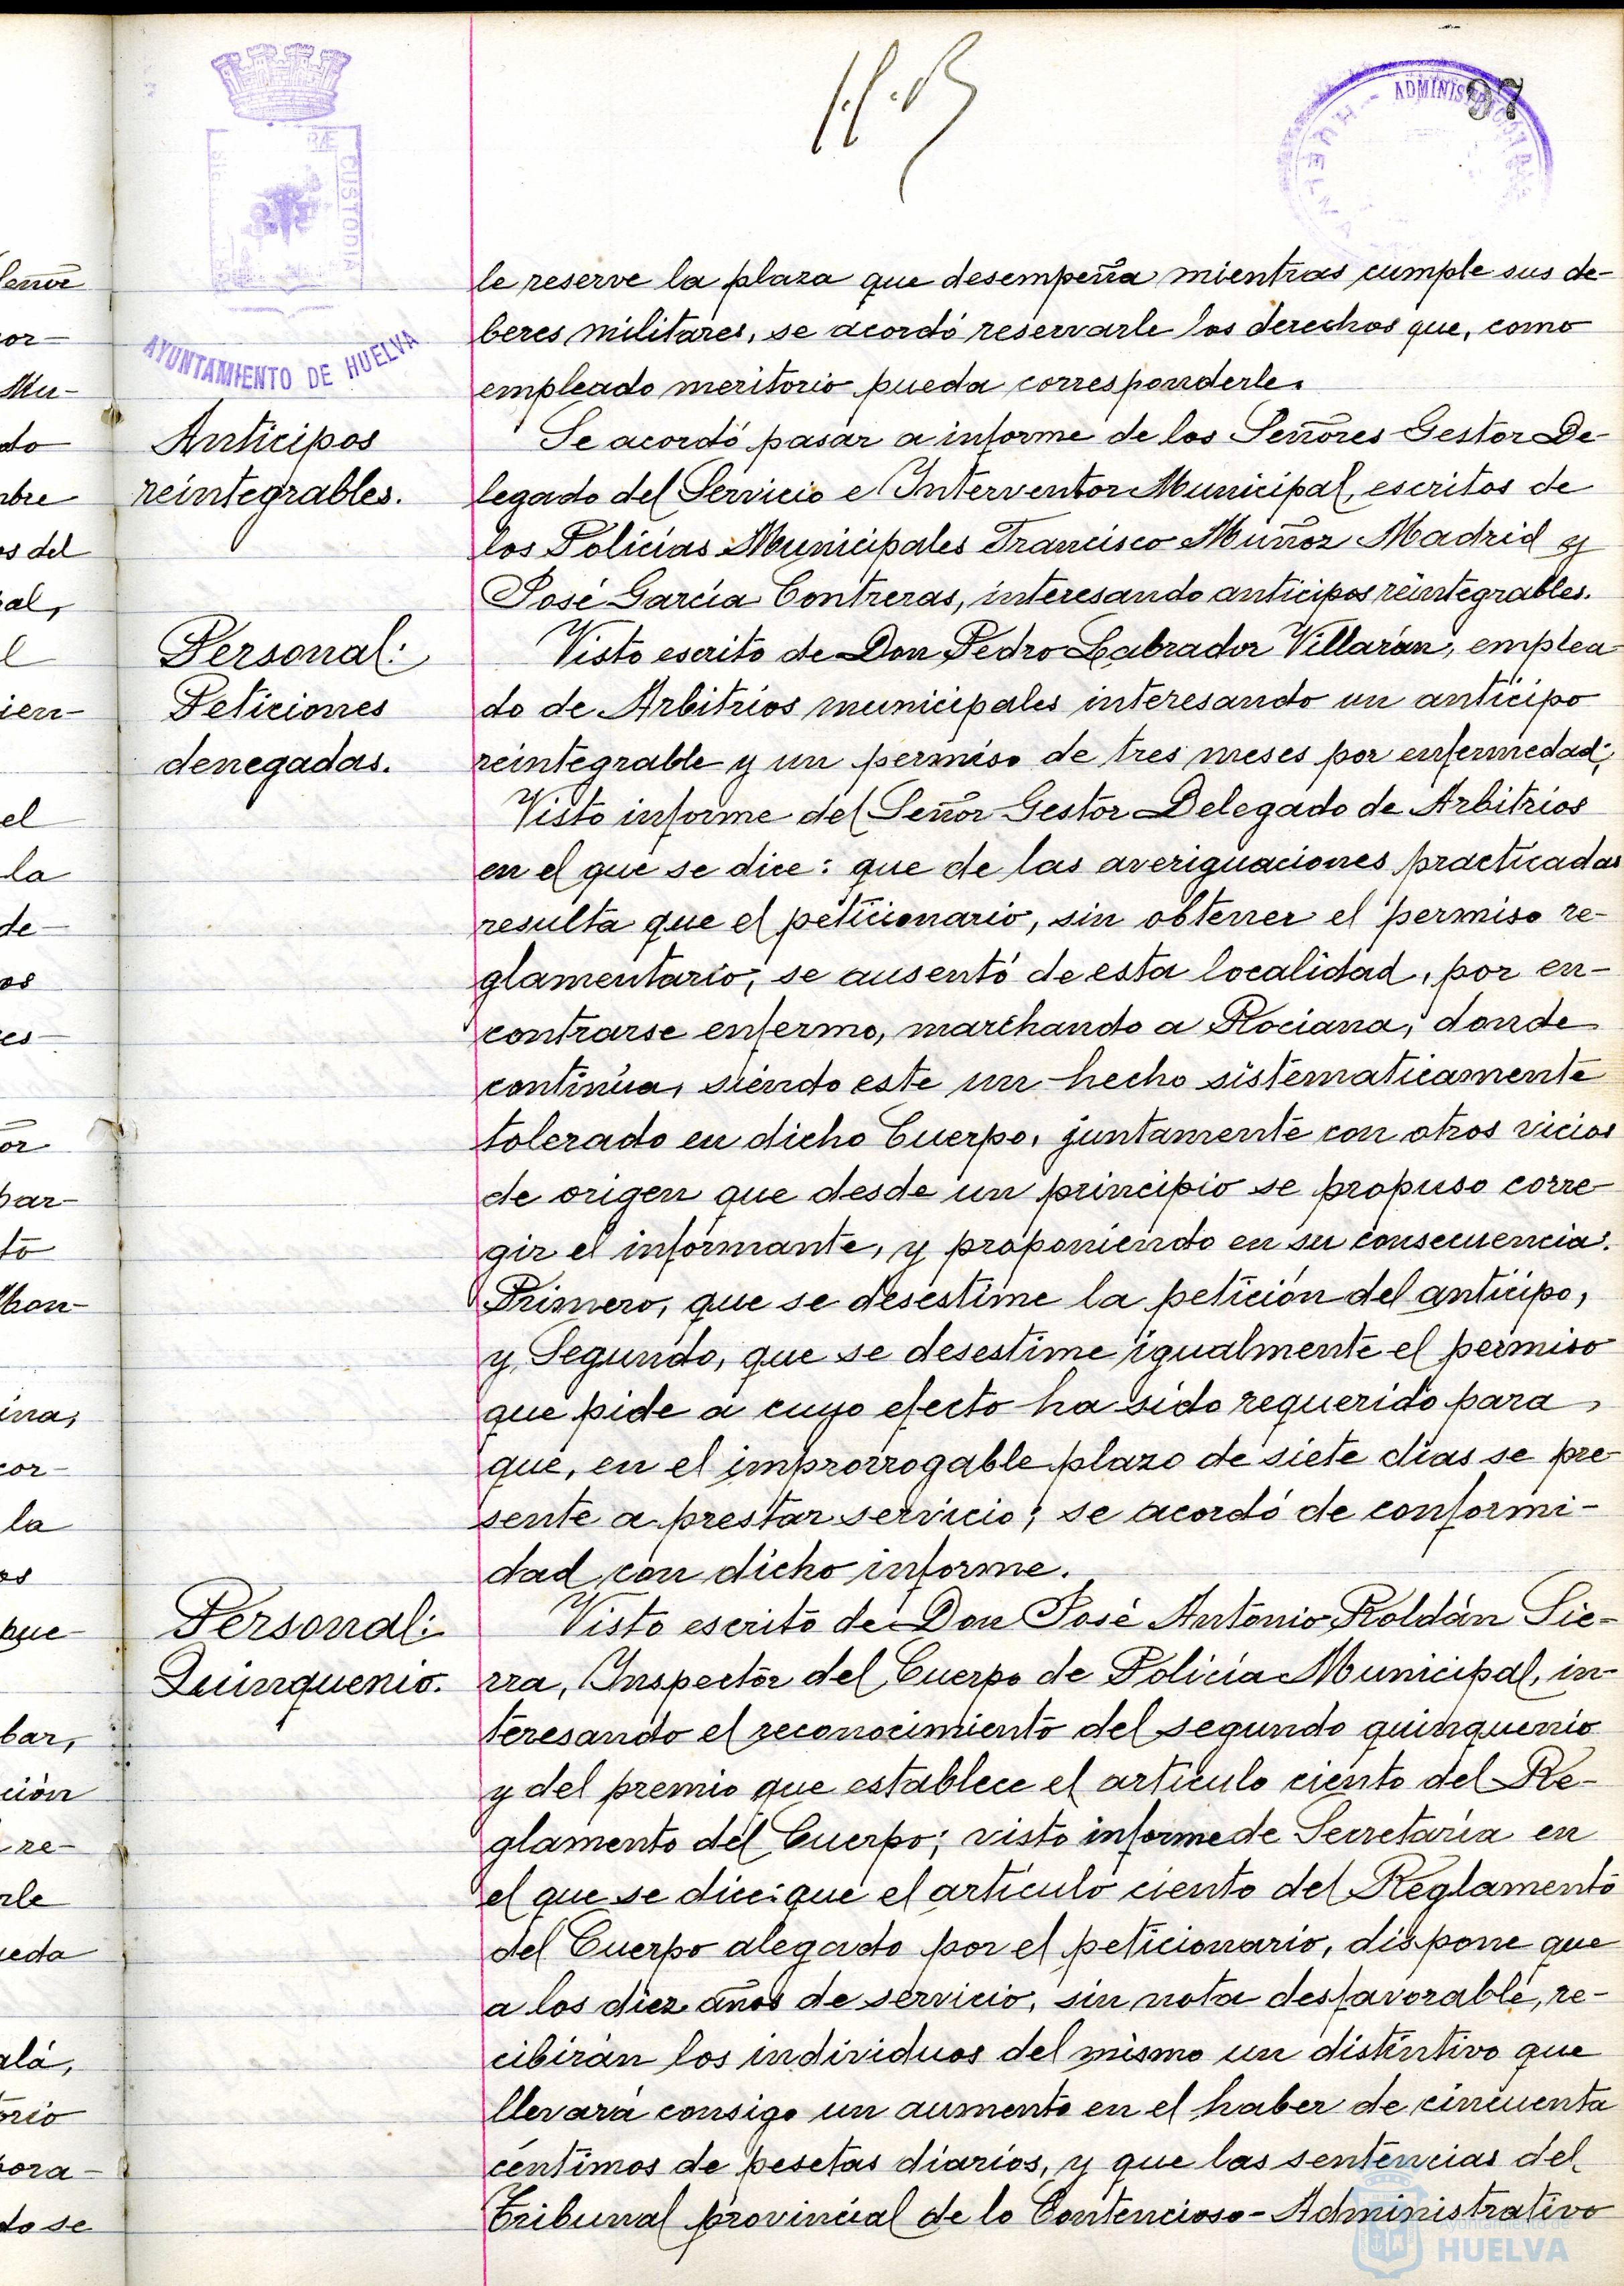 97
ADMINIS
HUEL
CUSTODIA
AYUNTAMIENTO DE HUELVA
le reserve la plaza que desempeña mientras cumple sus de-
beres militares, se acordó reservarle los derechos que, como
empleado meritorio pueda corresponderle.
Anticipos
reintegrables.
Se acordó pasar a informe de los Señores Gestor De-
legado del Servicio e Interventor Municipal, escritos de
los Policías Municipales Francisco Muñoz Madrid y
José García Contreras, interesando anticipos reintegrables.
Personal:
Peticiones
denegadas.
Visto escrito de Don Pedro Labrador Villarán, emplea-
do de Arbitrios municipales interesando un anticipo
reintegrable y un permiso de tres meses por enfermedad;
Visto informe del Señor Gestor Delegado de Arbitrios
en el que se dice: que de las averiguaciones practicadas
resulta que el peticionario, sin obtener el permiso re-
glamentario, se ausentó de esta localidad, por en-
contrarse enfermo, marchando a Rociana, donde
continúa, siendo este un hecho sistematicamente
tolerado en dicho Cuerpo, juntamente con otros vicios
de origen que desde un principio se propuso corre-
gir el informante, y proponiendo en su consecuencia:
Primero, que se desestime la petición del anticipo,
y Segundo, que se desestime igualmente el permiso
que pide a cuyo efecto ha sido requerido para
que, en el improrrogable plazo de siete días se pre-
sente a prestar servicio; se acordó de conformi-
dad con dicho informe.
Personal:
Quinquenio.
Visto escrito de Don José Antonio Roldán Sie-
rra, Inspector del Cuerpo de Policía Municipal, in-
teresando el reconocimiento del segundo quinquenio
y del premio que establece el artículo ciento del Re-
glamento del Cuerpo; visto informe de Secretaría en
el que se dice: que el artículo ciento del Reglamento
del Cuerpo alegado por el peticionario, dispone que
a los diez años de servicio, sin nota desfavorable, re-
cibirán los individuos del mismo un distintivo que
llevará consigo un aumento en el haber de cincuenta
céntimos de pesetas diarios, y que las sentencias del
Tribunal provincial de lo Contencioso-Administrativo
Ayuntamiento de
HUELVA